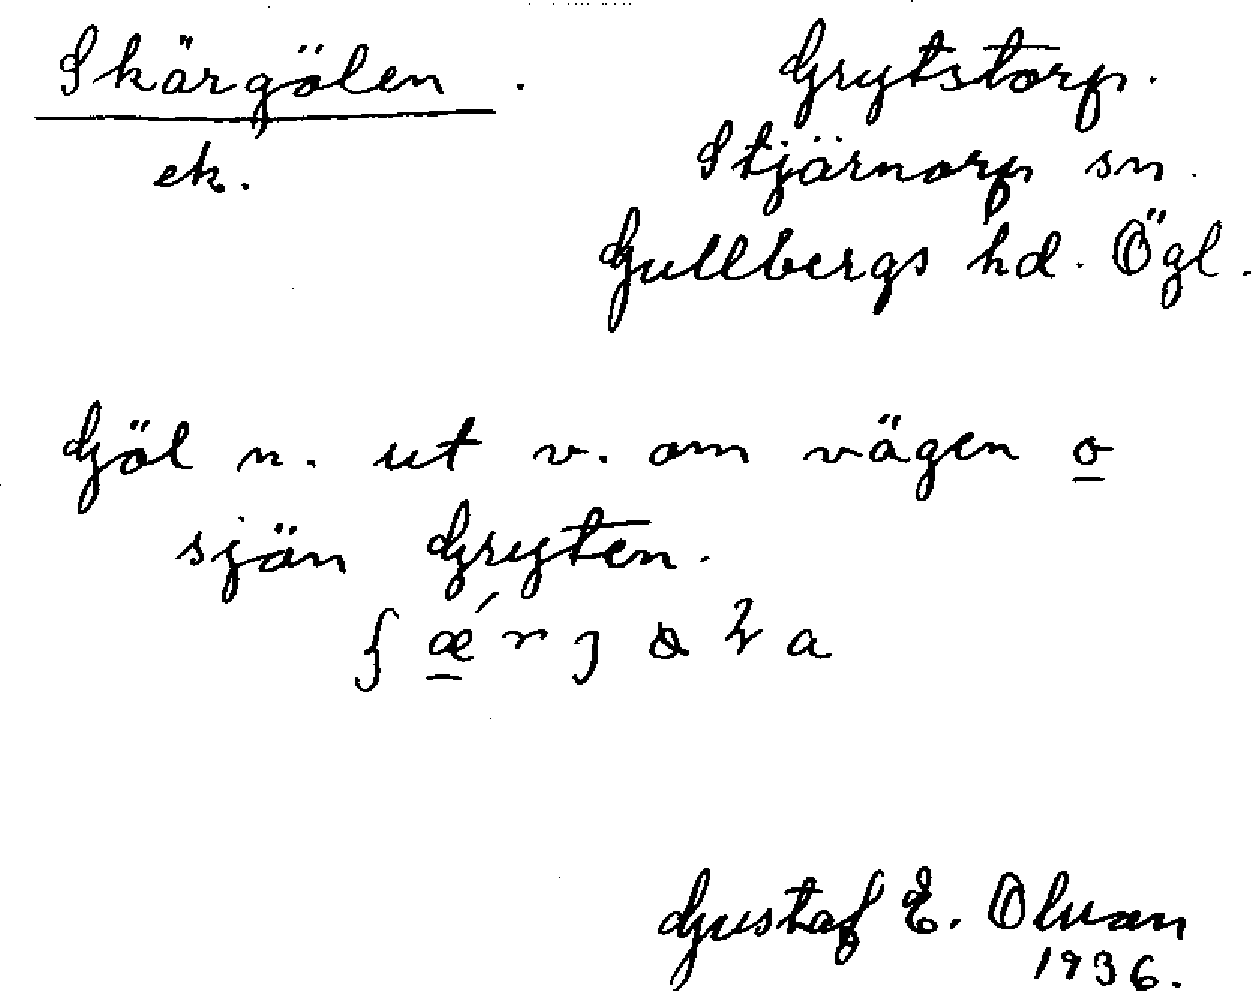 Skärgölen.
ek.
Grytstorp.
Stjärnorp sn.
Gullbergs hd. Ögl.
Göl n. ut v. om vägen o
sjön Gryten.
Gustaf E. Olvan
1936.